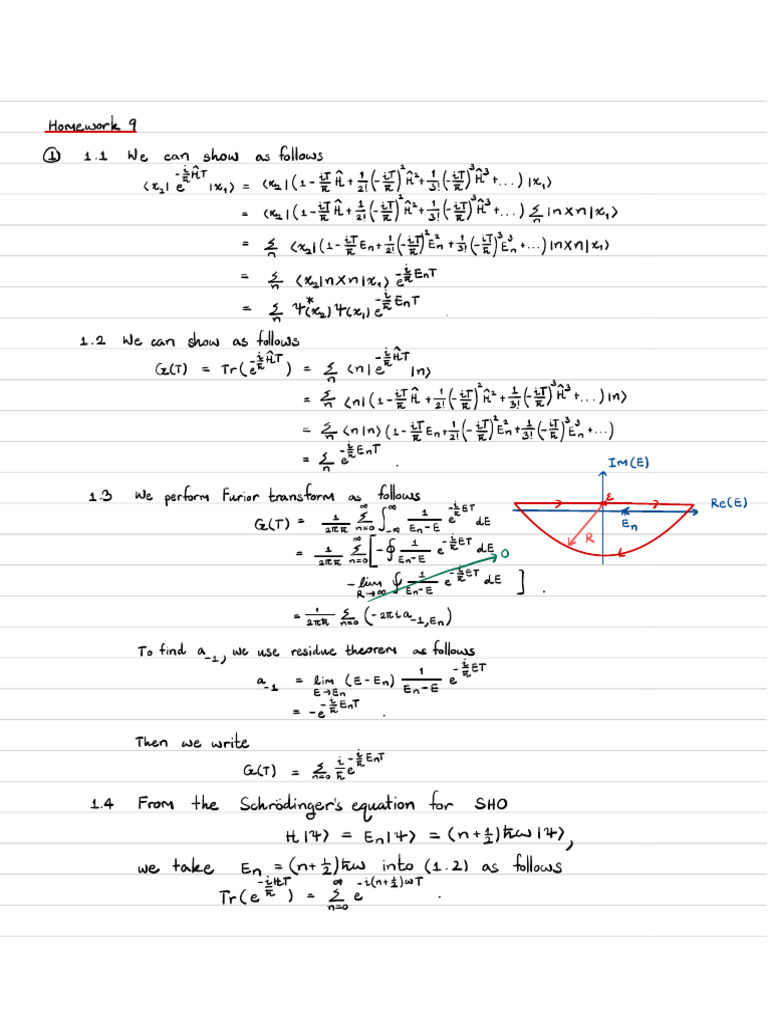 Homework 9
① 1.1 We can show as follows
⟨x₂| e^{-\frac{i}{ħ}ĤT} |x₁⟩ = ⟨x₂| (1 - \frac{iT}{ħ}Ĥ + \frac{1}{2!}(-\frac{iT}{ħ})^2 Ĥ^2 + \frac{1}{3!}(-\frac{iT}{ħ})^3 Ĥ^3 + ...) |x₁⟩
= ⟨x₂| (1 - \frac{iT}{ħ}Ĥ + \frac{1}{2!}(-\frac{iT}{ħ})^2 Ĥ^2 + \frac{1}{3!}(-\frac{iT}{ħ})^3 Ĥ^3 + ...) \sum_n |n⟩⟨n|x₁⟩
= \sum_n ⟨x₂| (1 - \frac{iT}{ħ}E_n + \frac{1}{2!}(-\frac{iT}{ħ})^2 E_n^2 + \frac{1}{3!}(-\frac{iT}{ħ})^3 E_n^3 + ...) |n⟩⟨n|x₁⟩
= \sum_n ⟨x₂|n⟩⟨n|x₁⟩ e^{-\frac{i}{ħ}E_nT}
= \sum_n Ψ^*(x₂) Ψ(x₁) e^{-\frac{i}{ħ}E_nT} .
1.2 We can show as follows
G(T) = Tr(e^{-\frac{i}{ħ}ĤT}) = \sum_n ⟨n| e^{-\frac{i}{ħ}ĤT} |n⟩
= \sum_n ⟨n| (1 - \frac{iT}{ħ}Ĥ + \frac{1}{2!}(-\frac{iT}{ħ})^2 Ĥ^2 + \frac{1}{3!}(-\frac{iT}{ħ})^3 Ĥ^3 + ...) |n⟩
= \sum_n ⟨n|n⟩ (1 - \frac{iT}{ħ}E_n + \frac{1}{2!}(-\frac{iT}{ħ})^2 E_n^2 + \frac{1}{3!}(-\frac{iT}{ħ})^3 E_n^3 + ...)
= \sum_n e^{-\frac{i}{ħ}E_nT} .
Im(E)
ε
Re(E)
E_n
R
1.3 We perform Furior transform as follows
G(T) = \frac{1}{2πħ} \sum_{n=0}^{∞} \int_{-∞}^{∞} \frac{1}{E_n - E} e^{-\frac{i}{ħ}ET} dE
= \frac{1}{2πħ} \sum_{n=0}^{∞} [ -\oint \frac{1}{E_n - E} e^{-\frac{i}{ħ}ET} dE
- \lim_{R→∞} \oint \frac{1}{E_n - E} e^{-\frac{i}{ħ}ET} dE ] . 0
= \frac{1}{2πħ} \sum_{n=0} (-2πi a_{-1,E_n})
To find a_{-1}, we use residue theorem as follows
a_{-1} = \lim_{E→E_n} (E - E_n) \frac{1}{E_n - E} e^{-\frac{i}{ħ}ET}
= -e^{-\frac{i}{ħ}E_nT} .
Then we write
G(T) = \sum_{n=0} \frac{i}{ħ} e^{-\frac{i}{ħ}E_nT}
1.4 From the Schrödinger's equation for SHO
H|Ψ⟩ = E_n|Ψ⟩ = (n+\frac{1}{2})ħω|Ψ⟩,
we take E_n = (n+\frac{1}{2})ħω into (1.2) as follows
Tr(e^{-\frac{i}{ħ}HT}) = \sum_{n=0}^{∞} e^{-i(n+\frac{1}{2})ωT} .